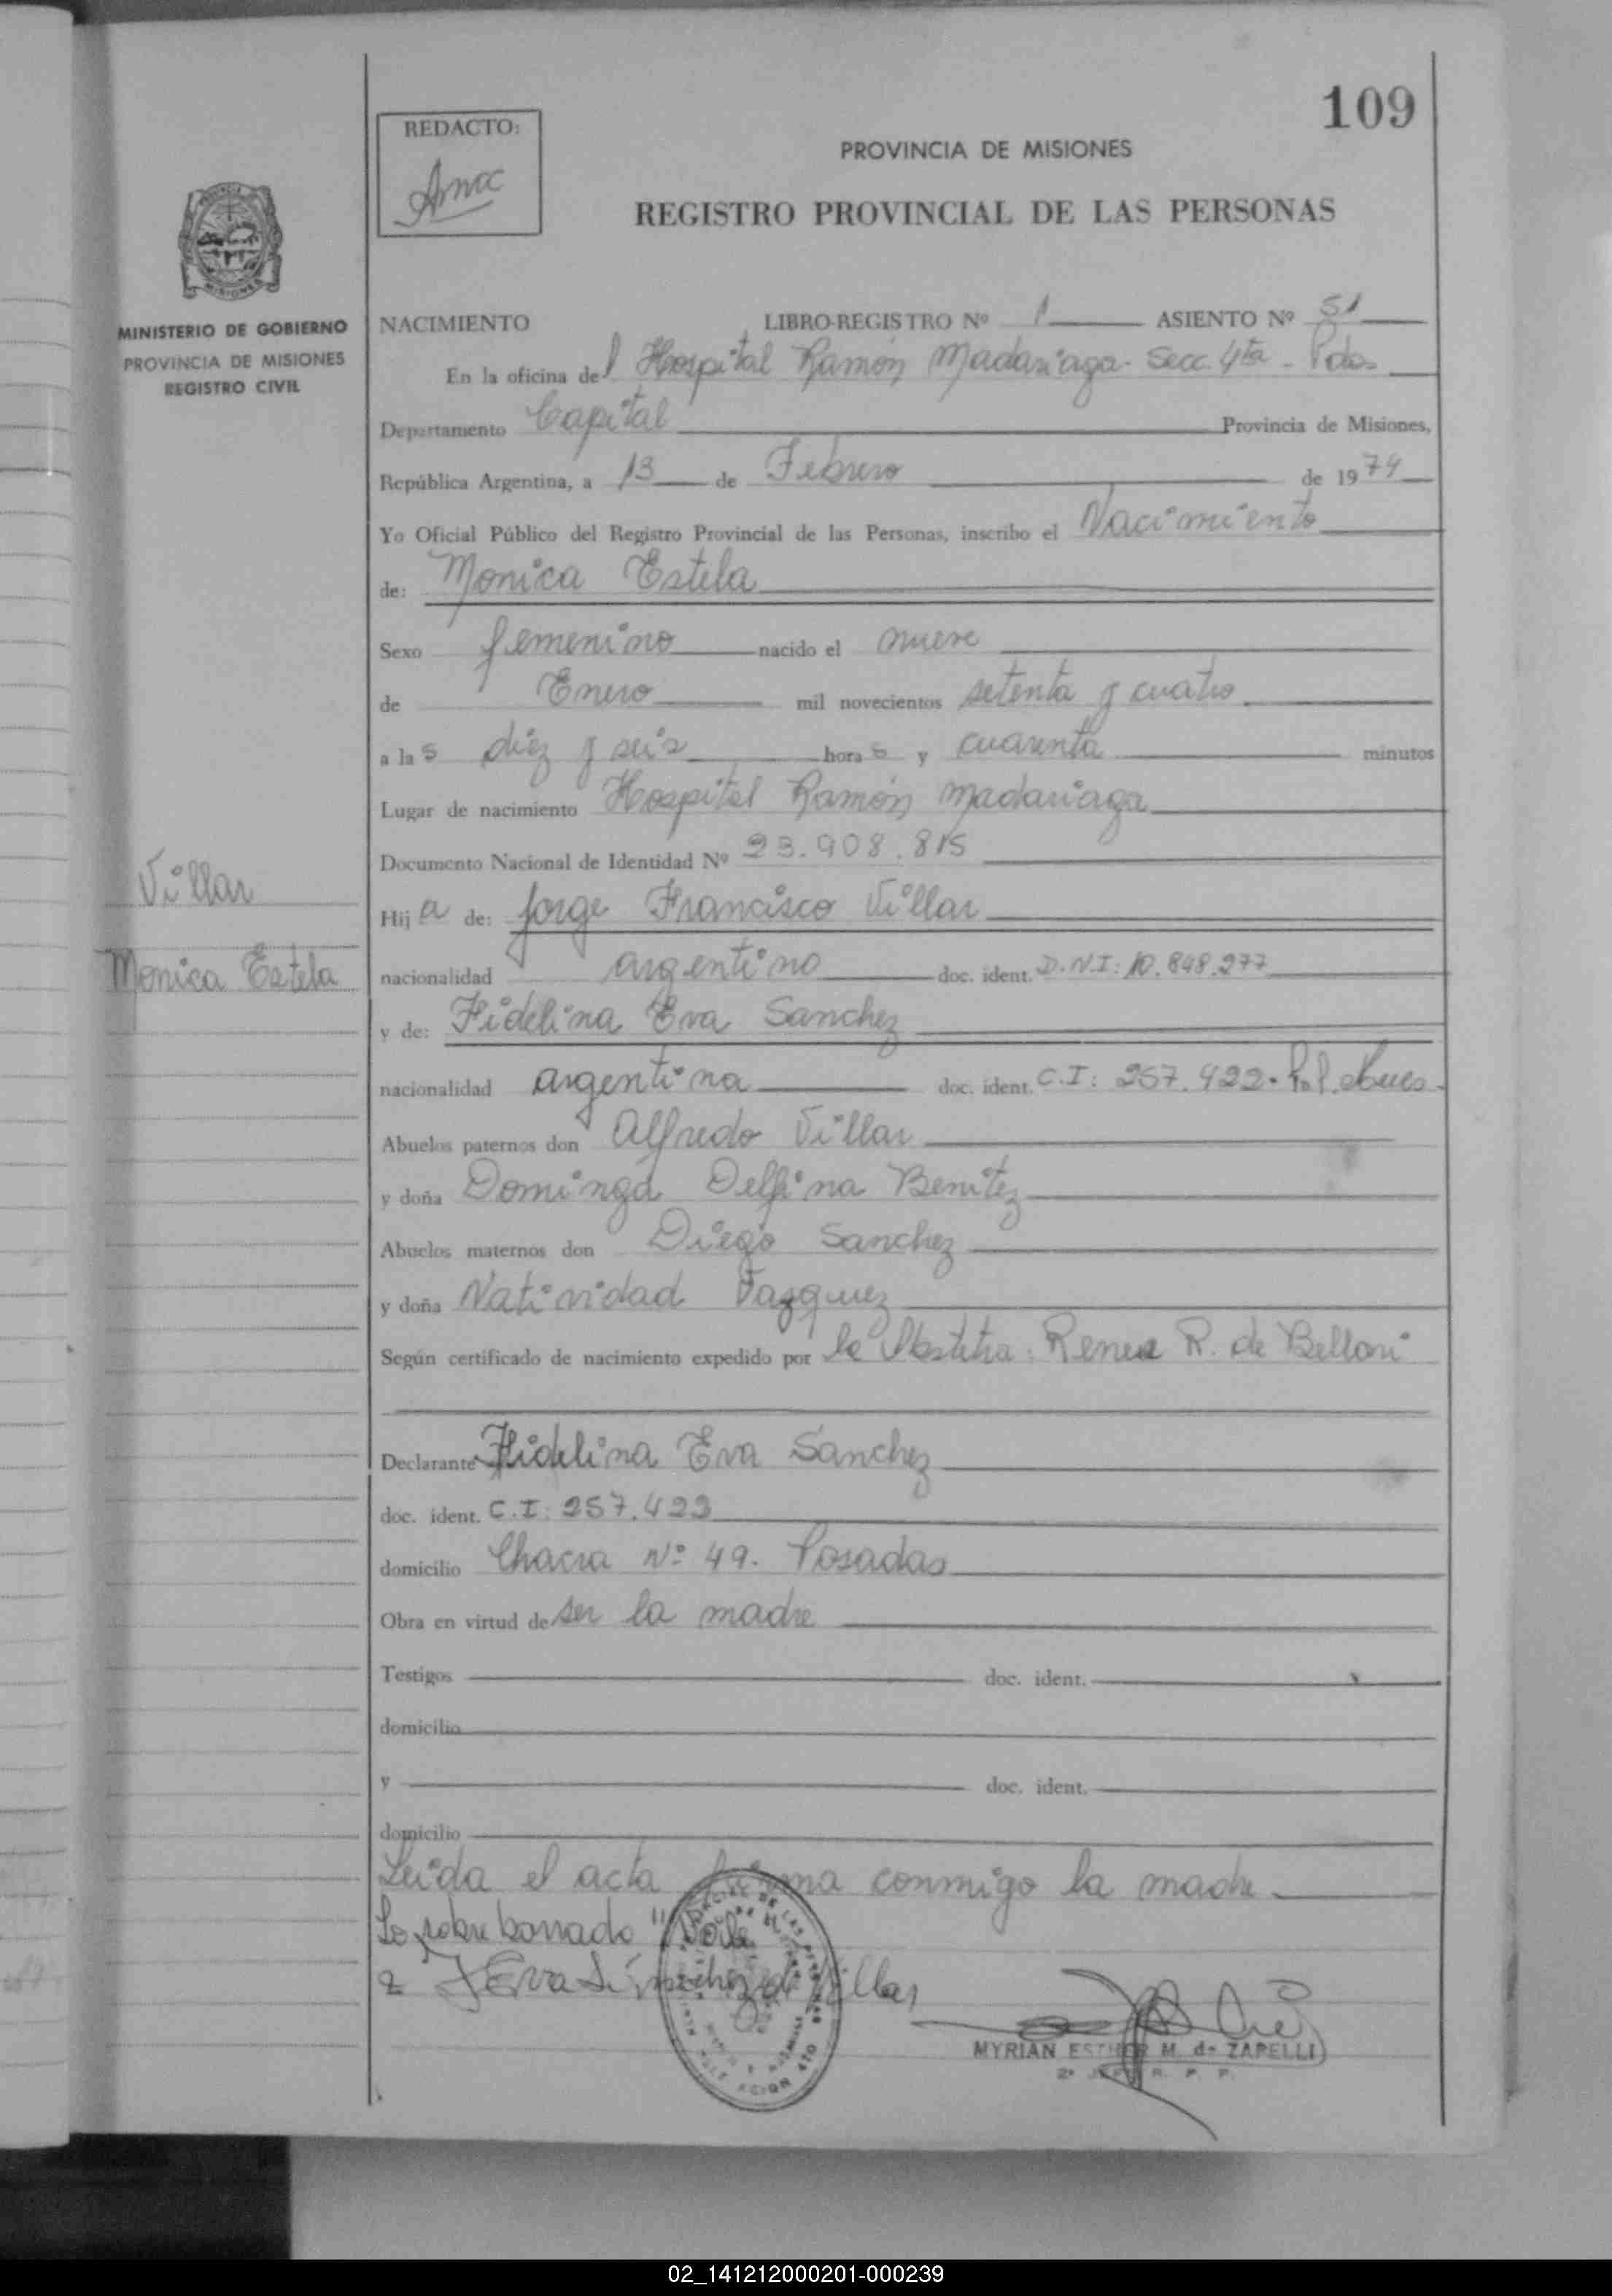 109
REDACTO:
PROVINCIA DE MISIONES
REGISTRO PROVINCIAL DE LAS PERSONAS
MISIONES
MINISTERIO DE GOBIERNO
PROVINCIA DE MISIONES
REGISTRO CIVIL
NACIMIENTO LIBRO-REGISTRO Nº 1 ASIENTO Nº 51
En la oficina del Hospital Ramón Madariaga - Secc. 4ta - Pdas
Departamento Capital Provincia de Misiones,
República Argentina, a 13 de Febrero de 1974
Yo Oficial Público del Registro Provincial de las Personas, inscribo el Nacimiento
de: Monica Estela
Sexo femenino nacido el nueve
de Enero mil novecientos setenta y cuatro
a las diez y seis horas y cuarenta minutos
Lugar de nacimiento Hospital Ramón Madariaga
Documento Nacional de Identidad Nº 23.908.815
Villar
Hija de: Jorge Francisco Villar
Monica Estela
nacionalidad argentino doc. ident. D.N.I: 10.848.277
y de: Fidelina Eva Sanchez
nacionalidad argentina doc. ident. C.I: 257.422. Pol.
Abuelos paternos don Alfredo Villar
y doña Dominga Delfina Benitez
Abuelos maternos don Diego Sanchez
y doña Natividad Vazquez
Según certificado de nacimiento expedido por la Obstetra: Renea R. de Belloni
Declarante Fidelina Eva Sanchez
doc. ident. C.I: 257.423
domicilio Chacra Nº 49. Posadas
Obra en virtud de ser la madre
Testigos doc. ident.
domicilio
y doc. ident.
domicilio
Leida el acta firma conmigo la madre
Lo sobre borrado
MYRIAN ESTHER M. de ZAPELLI
2º JEFE R. P. P.
02_141212000201-000239